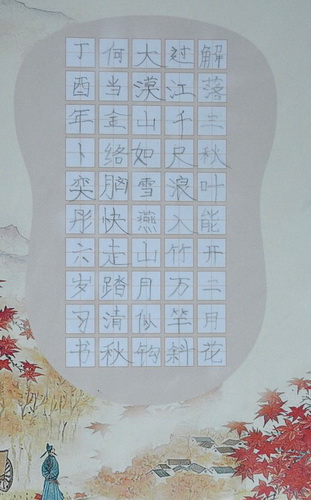 解落三秋叶能开二月花
过江千尺浪入竹万竿斜
大漠山如雪燕山月似钩
何当金络脑快走踏清秋
丁酉年卜奕彤六岁习书